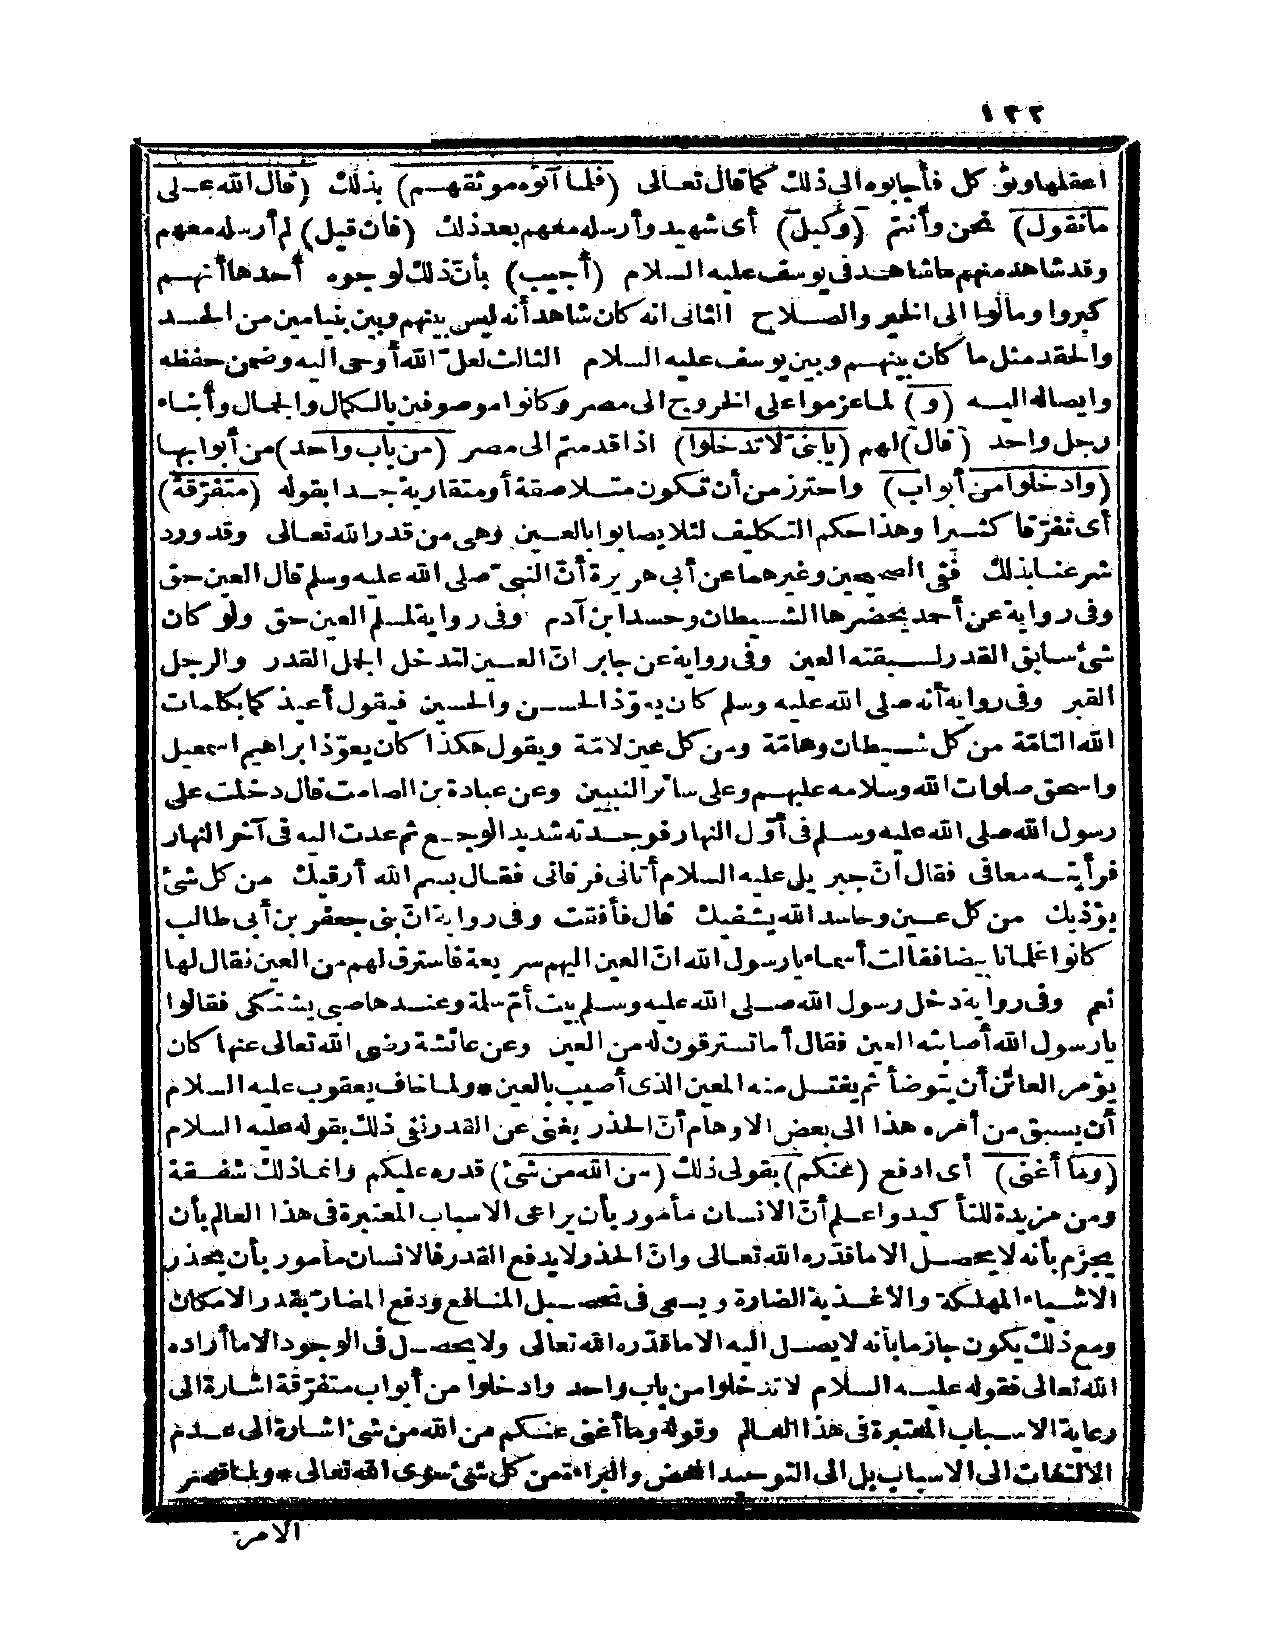 ١٢٢
أعقلها وتوكل فأجابوه الى ذلك كما قال تعالى (فلما آتوه موثقهم) بذلك (قال الله على
ما نقول) نحن وأنتم (وكيل) أى شهيد وأرسله معهم بعد ذلك (فان قيل) لم أرسله معهم
وقد شاهد منهم ما شاهد فى يوسف عليه السلام (أجيب) بأنّ ذلك لوجوه أحدها أنهم
كبروا ومالوا الى الخير والصلاح الثانى انه كان شاهد أنه ليس بينهم وبين بنيامين من الحسد
والحقد مثل ما كان بينهم وبين يوسف عليه السلام الثالث لعلّ الله أوحى اليه وضمن حفظه
وايصاله اليه (و) لما عزموا على الخروج الى مصر وكانوا موصوفين بالكمال والجمال وأبناء
رجل واحد (قال) لهم (يا بنىّ لا تدخلوا) اذا قدمتم الى مصر (من باب واحد) من أبوابها
(وادخلوا من أبواب) واحترز من أن تكون متلاصقة أو متقاربة جدا بقوله (متفرّقة)
أى تفرّقا كثيرا وهذا حكم التكليف لئلا يصابوا بالعين وهى من قدر الله تعالى وقد ورد
شرعنا بذلك ففى الصحيحين وغيرهما عن أبى هريرة أنّ النبىّ صلى الله عليه وسلم قال العين حق
وفى رواية عن أحمد يحضرها الشيطان وحسد ابن آدم وفى رواية لمسلم العين حق ولو كان
شئ سابق القدر لسبقته العين وفى رواية عن جابر انّ العين لتدخل الجمل القدر والرجل
القبر وفى رواية أنه صلى الله عليه وسلم كان يعوّذ الحسن والحسين فيقول أعيذ كما بكلمات
الله التامّة من كل شيطان وهامّة ومن كل عين لامّة ويقول هكذا كان يعوّذ ابراهيم اسمعيل
واسحق صلوات الله وسلامه عليهم وعلى سائر النبيين وعن عبادة بن الصامت قال دخلت على
رسول الله صلى الله عليه وسلم فى أوّل النهار فوجدته شديد الوجع ثم عدت اليه فى آخر النهار
فرأيته معافى فقال أنّ جبريل عليه السلام أتانى فرقانى فقال بسم الله أرقيك من كل شئ
يؤذيك من كل عين وحاسد الله يشفيك قال فأفقت وفى رواية انّ بنى جعفر بن أبى طالب
كانوا غلمانا بيضا فقالت أسماء يا رسول الله انّ العين اليهم سريعة فاسترق لهم من العين فقال لها
نعم وفى رواية دخل رسول الله صلى الله عليه وسلم بيت أمّ سلمة وعندها صبى يشتكى فقالوا
يا رسول الله أصابته العين فقال أما تسترقون له من العين وعن عائشة رضى الله تعالى عنها كان
يؤمر العائن أن يتوضأ ثم يغتسل منه المعين الذى أصيب بالعين * ولما خاف يعقوب عليه السلام
أن يسبق من أمره هذا الى بعض الاوهام أنّ الحذر يغنى عن القدر نفى ذلك بقوله عليه السلام
(وما أغنى) أى ادفع (عنكم) بقولى ذلك (من الله من شئ) قدره عليكم وانما ذلك شفقة
ومن مزيدة للتأكيد واعلم أنّ الانسان مأمور بأن يراعى الاسباب المعتبرة فى هذا العالم بأن
يجزم بأنه لا يحصل الا ما قدّره الله تعالى وانّ الحذر لا يدفع القدر فالانسان مأمور بأن يحذر
الاشياء المهلكة والاغذية الضارة ويسعى فى تحصيل المنافع ودفع المضارّ بقدر الامكان
ومع ذلك يكون جازما بأنه لا يصل اليه الا ما قدّره الله تعالى ولا يحصل فى الوجود الا ما أراده
الله تعالى فقوله عليه السلام لا تدخلوا من باب واحد وادخلوا من أبواب متفرّقة اشارة الى
رعاية الاسباب المعتبرة فى هذا العالم وقوله وما أغنى عنكم من الله من شئ اشارة الى عدم
الالتفات الى الاسباب بل الى التوحيد المحض والبراءة من كل شئ سوى الله تعالى * ولما قصر
الامر